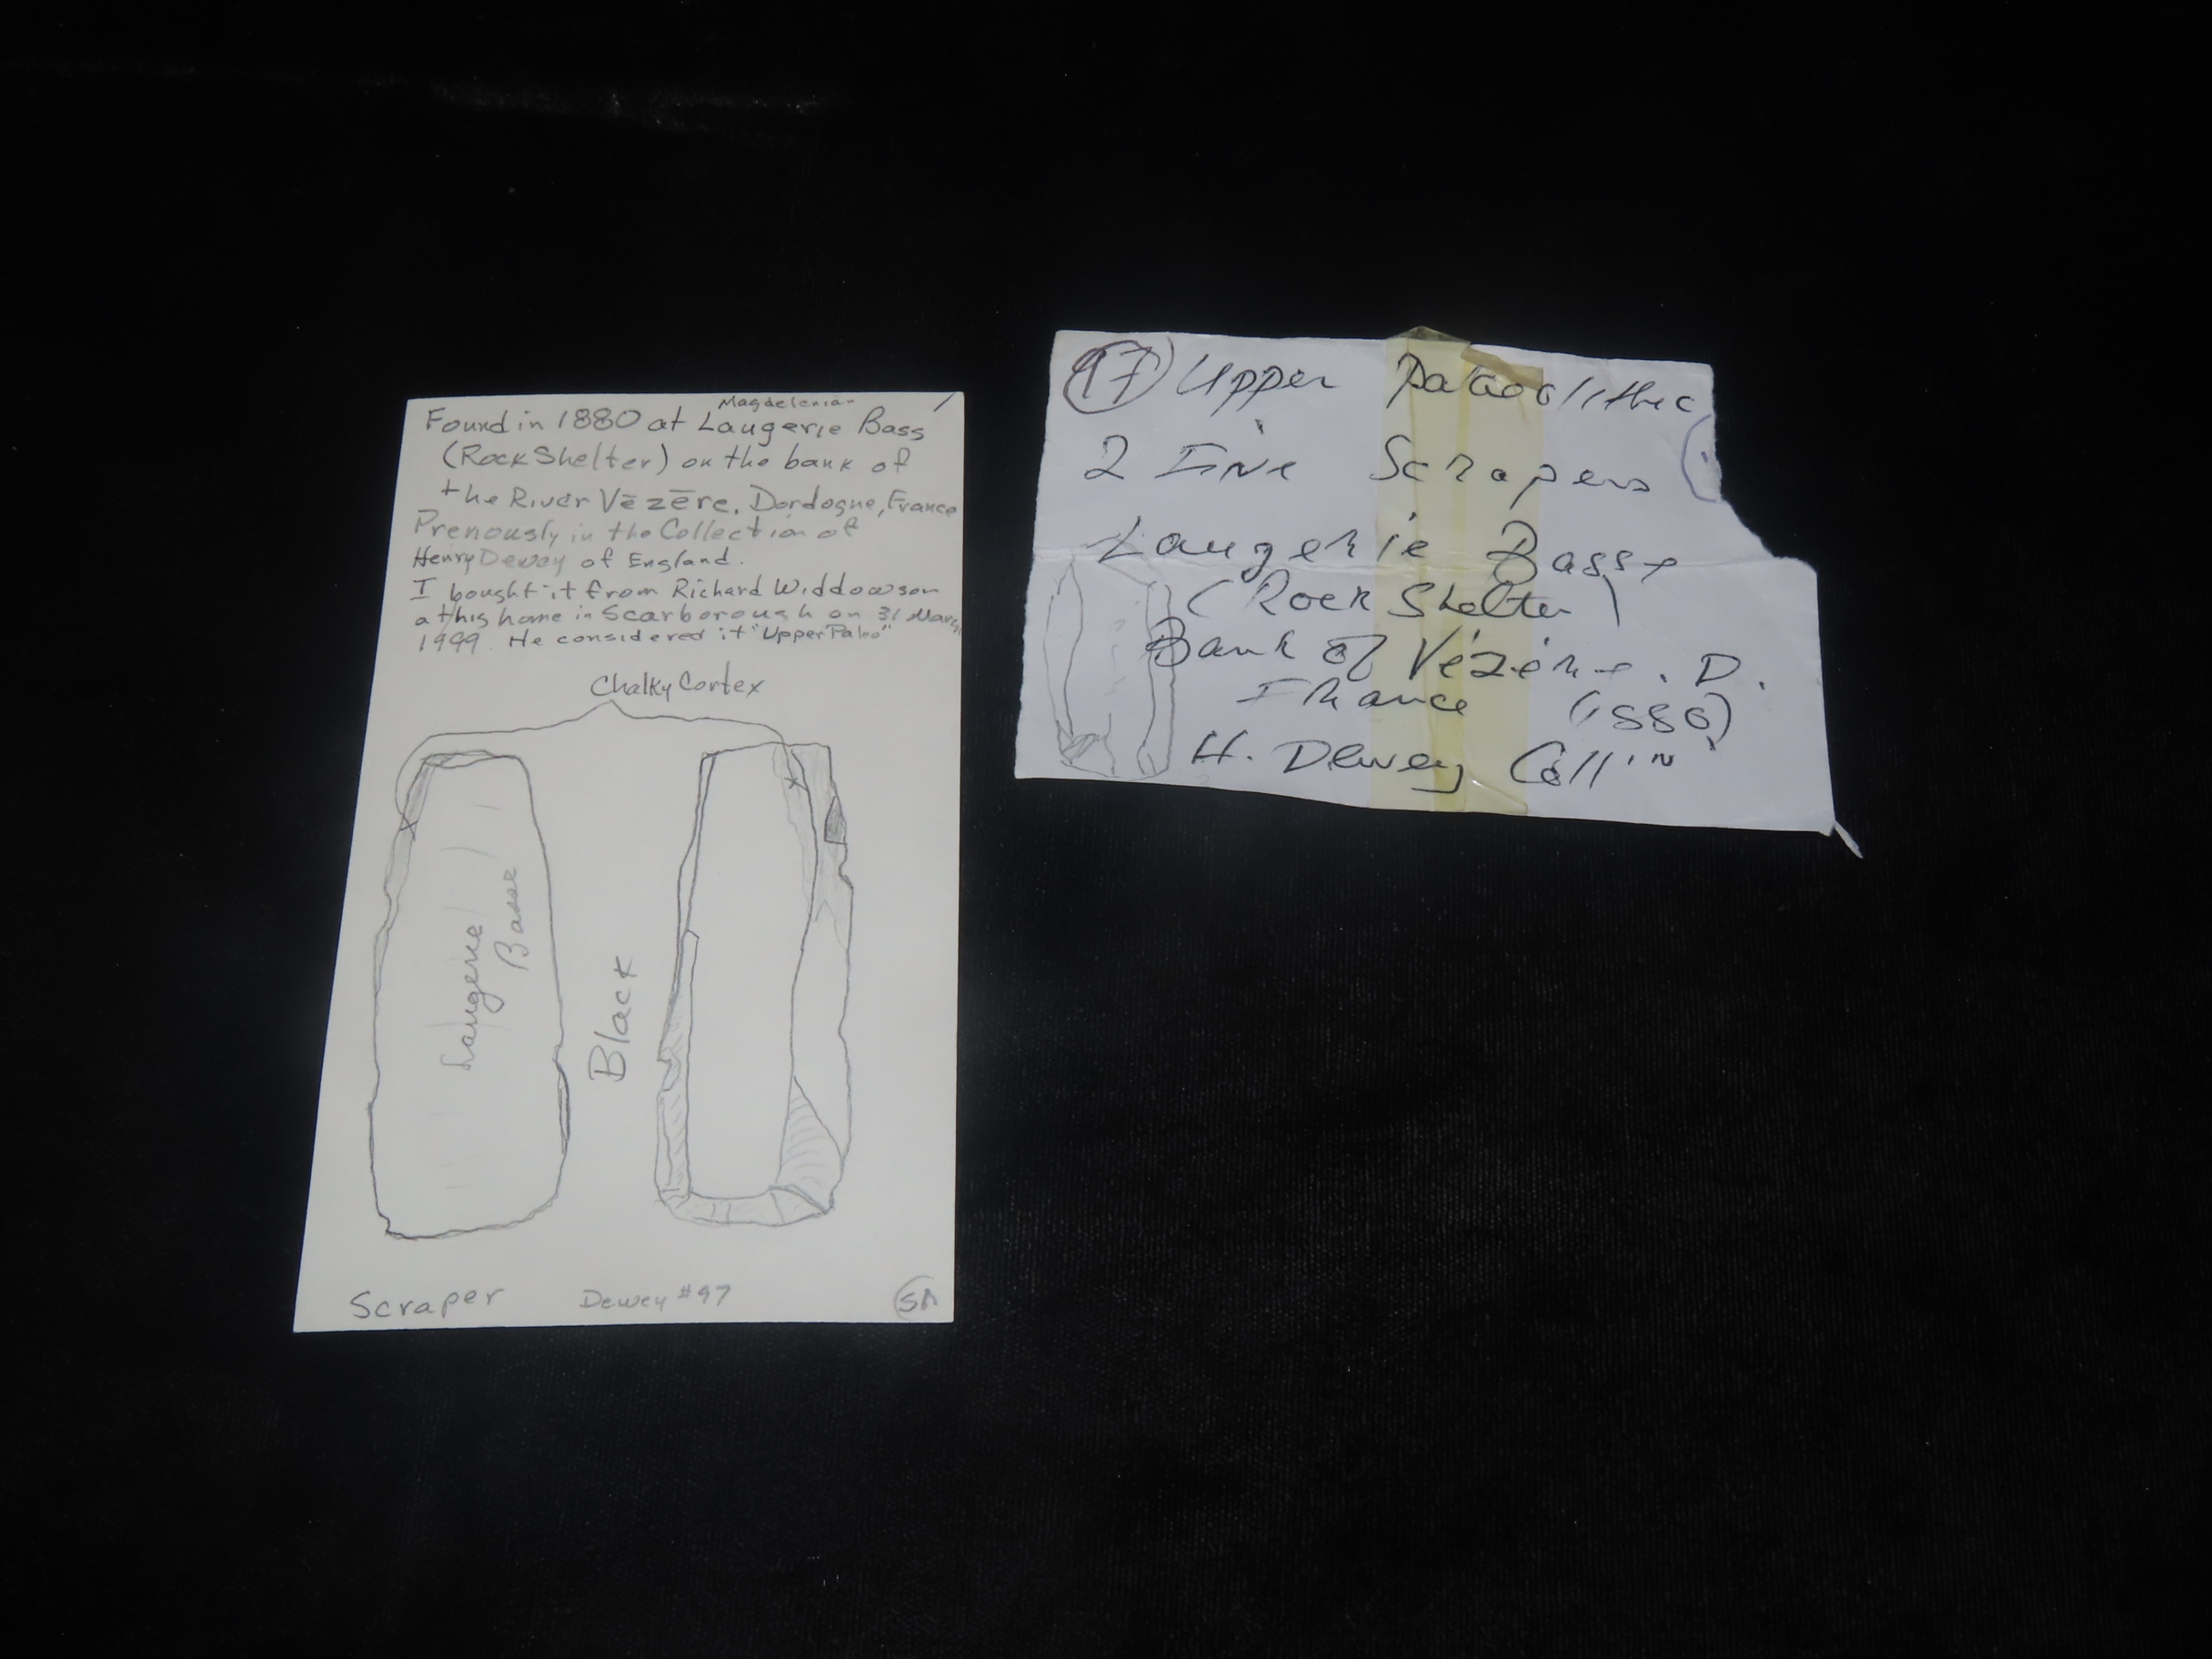 Magdelenian
Found in 1880 at Laugerie Bass
(Rock Shelter) on the bank of
the River Vēzēre, Dordogne, France
Prenously in the Collection of
Henry Dewey of England.
I bought it from Richard Widdowson
at his home in Scarborough on 31 March
1999. He considered it "Upper Paleo"
Chalky Cortex
Laugerie
Basse
Black
Scraper
Dewey #97
97 Upper Palaeolithic
2 Fine Scrapers
Laugerie Basse
(Rock Shelter)
Bank of Vézère. D.
France (1880)
H. Dewey Coll'n